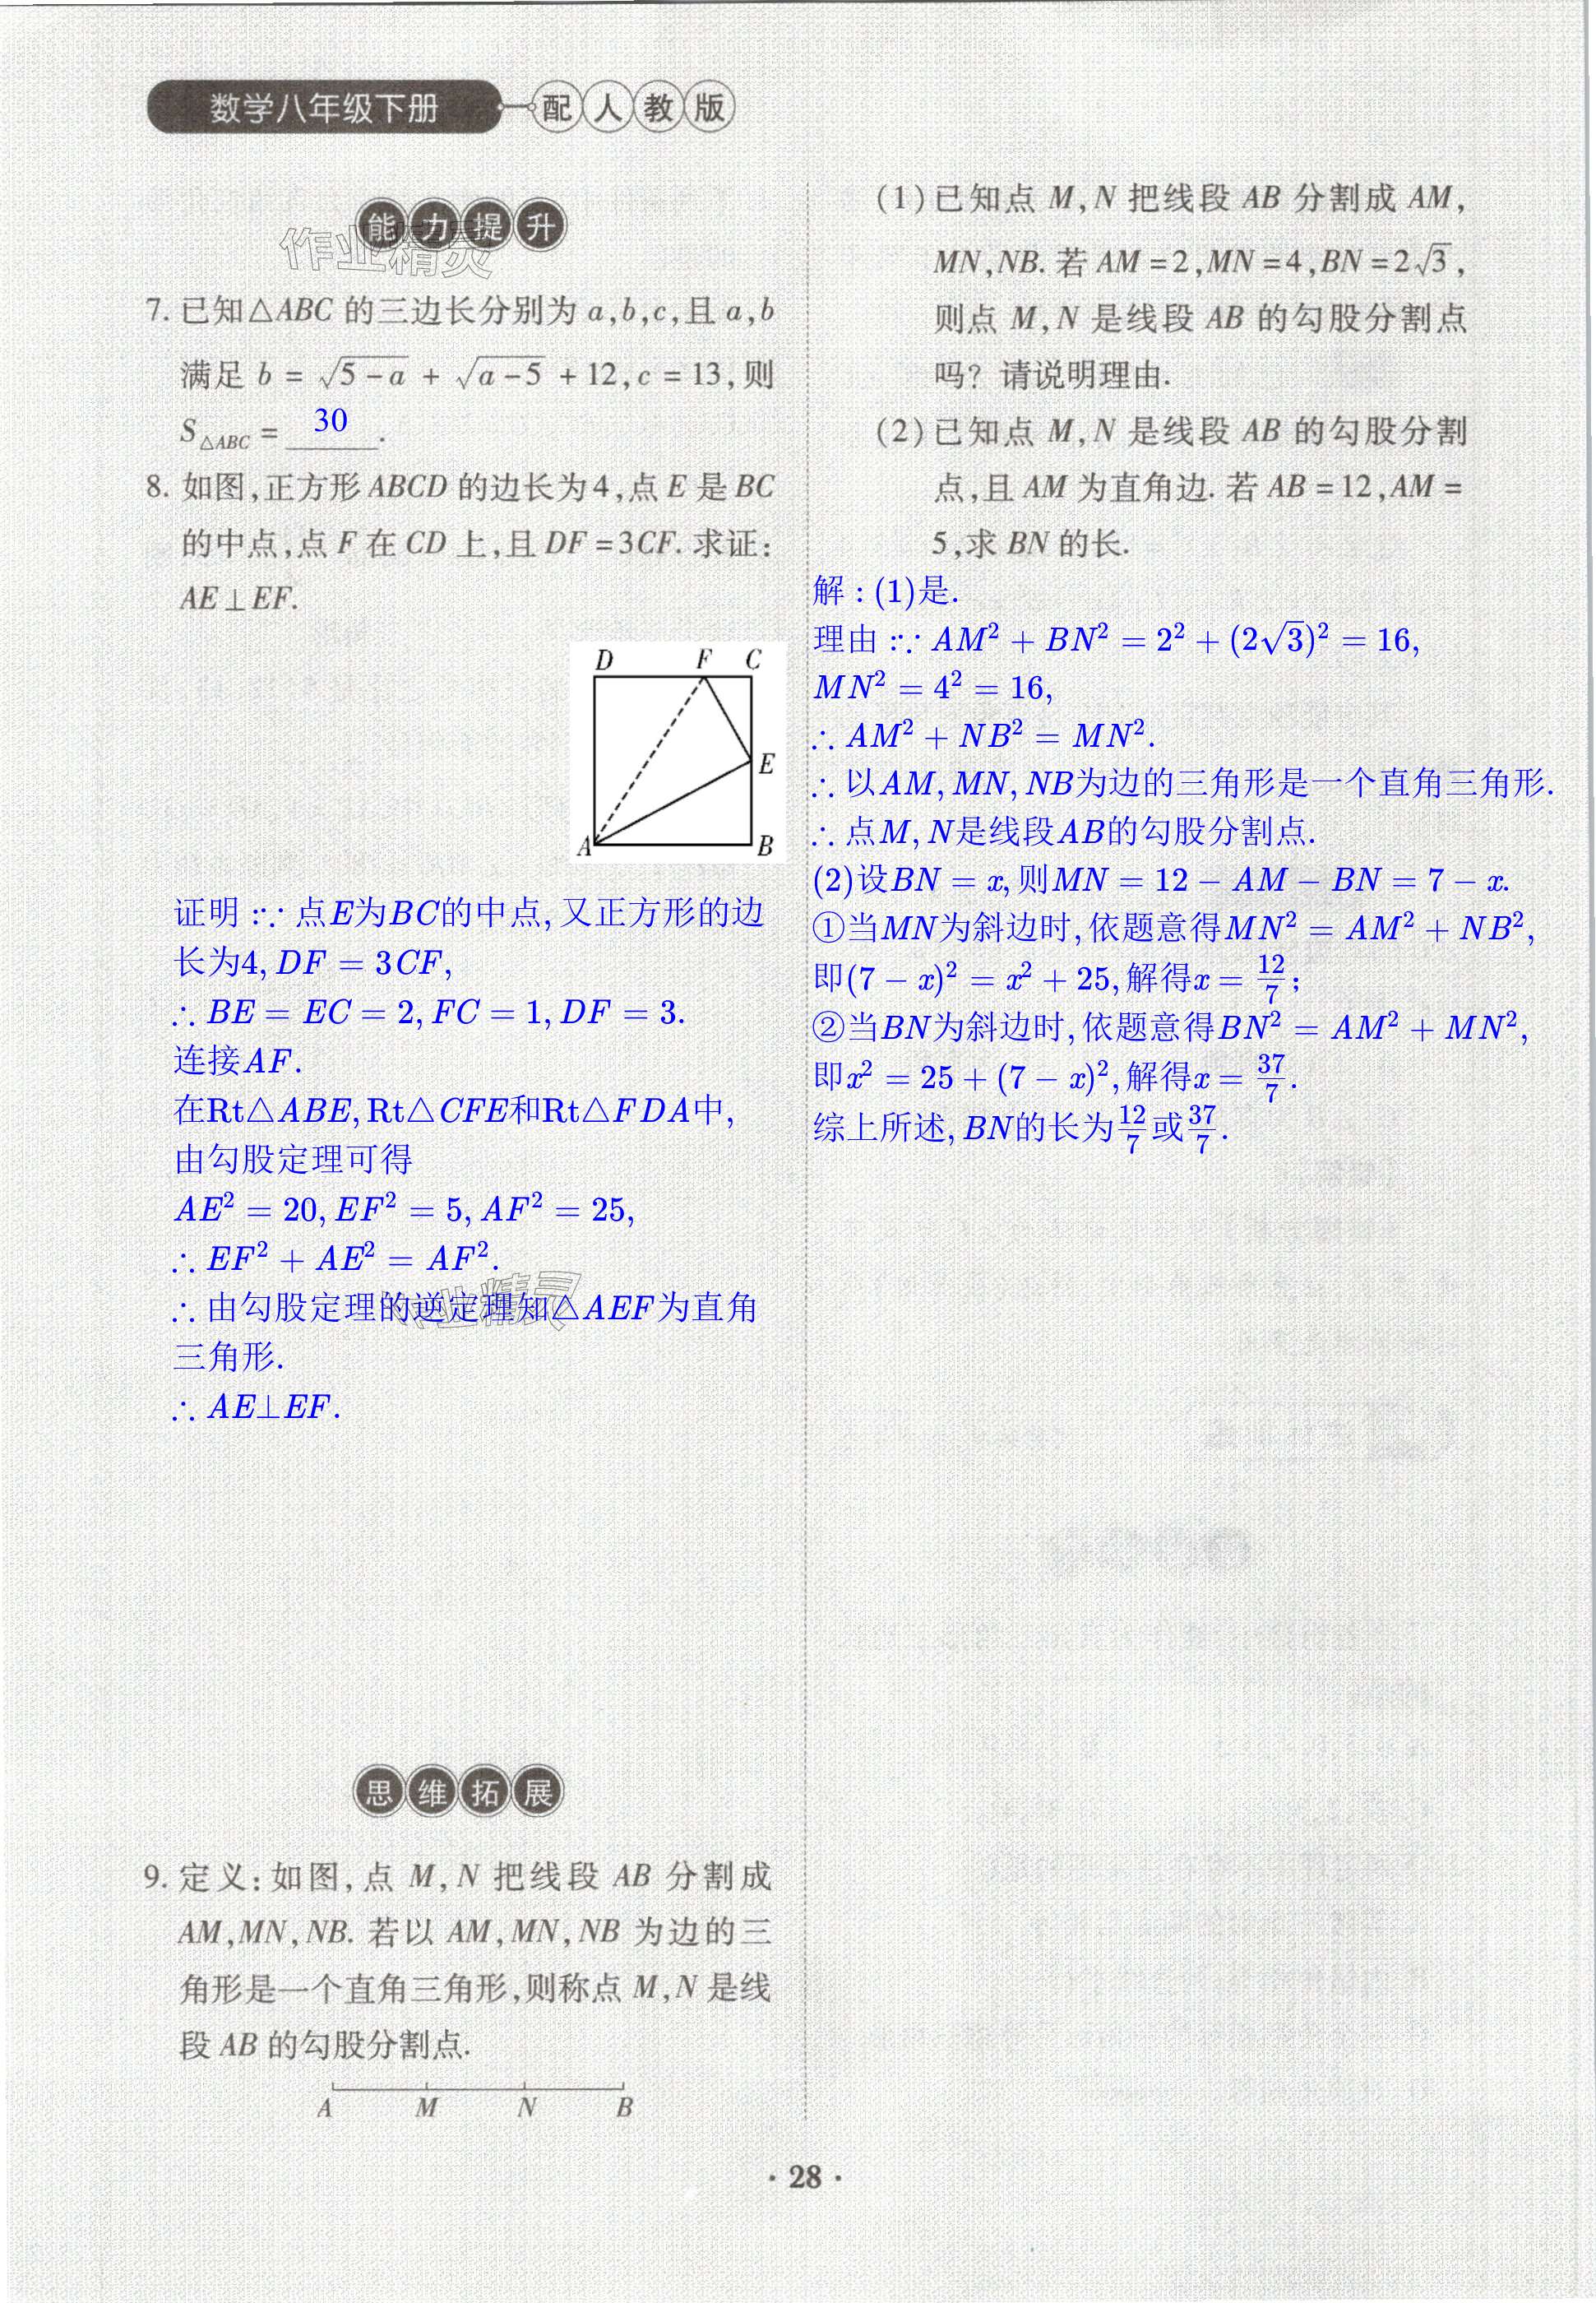 数学八年级下册 配人教版
能力提升
作业精灵
7. 已知△ABC 的三边长分别为 a,b,c,且 a,b
满足 b = √(5-a) + √(a-5) + 12,c = 13,则
S△ABC = 30.
8. 如图,正方形 ABCD 的边长为4,点 E 是 BC
的中点,点 F 在 CD 上,且 DF = 3CF. 求证:
AE⊥EF.
D F C
E
A B
证明:∵点E为BC的中点,又正方形的边
长为4, DF = 3CF,
∴ BE = EC = 2, FC = 1, DF = 3.
连接AF.
在Rt△ABE, Rt△CFE和Rt△FDA中,
由勾股定理可得
AE² = 20, EF² = 5, AF² = 25,
∴ EF² + AE² = AF².
∴ 由勾股定理的逆定理知△AEF为直角
作业精灵
三角形.
∴ AE⊥EF.
思维拓展
9. 定义:如图,点 M,N 把线段 AB 分割成
AM,MN,NB. 若以 AM,MN,NB 为边的三
角形是一个直角三角形,则称点 M,N 是线
段 AB 的勾股分割点.
A M N B
(1)已知点 M,N 把线段 AB 分割成 AM,
MN,NB. 若 AM = 2,MN = 4,BN = 2√3,
则点 M,N 是线段 AB 的勾股分割点
吗? 请说明理由.
(2)已知点 M,N 是线段 AB 的勾股分割
点,且 AM 为直角边. 若 AB = 12,AM =
5,求 BN 的长.
解:(1)是.
理由:∵ AM² + BN² = 2² + (2√3)² = 16,
MN² = 4² = 16,
∴ AM² + NB² = MN².
∴ 以AM, MN, NB为边的三角形是一个直角三角形.
∴ 点M, N是线段AB的勾股分割点.
(2)设BN = x, 则MN = 12 - AM - BN = 7 - x.
①当MN为斜边时, 依题意得MN² = AM² + NB²,
即(7 - x)² = x² + 25, 解得x = 12/7;
②当BN为斜边时, 依题意得BN² = AM² + MN²,
即x² = 25 + (7 - x)², 解得x = 37/7.
综上所述, BN的长为12/7或37/7.
· 28 ·